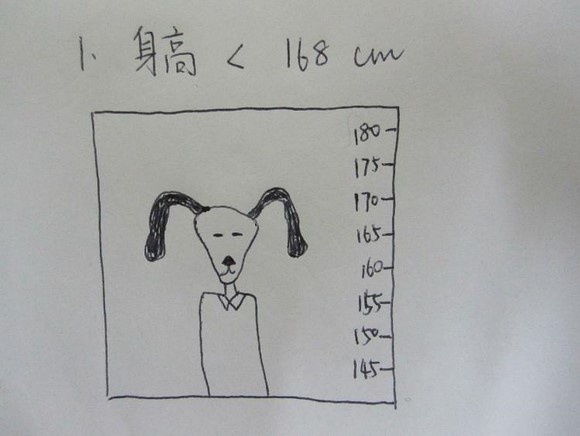 1. 身高 < 168 cm
180
175
170
165
160
155
150
145